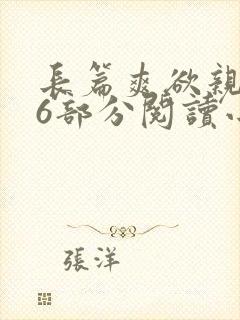 長篇爽欲親
6部分閱讀
張洋